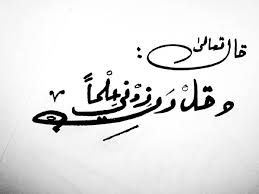 قال تعالى :
وقل رب زدني علماً